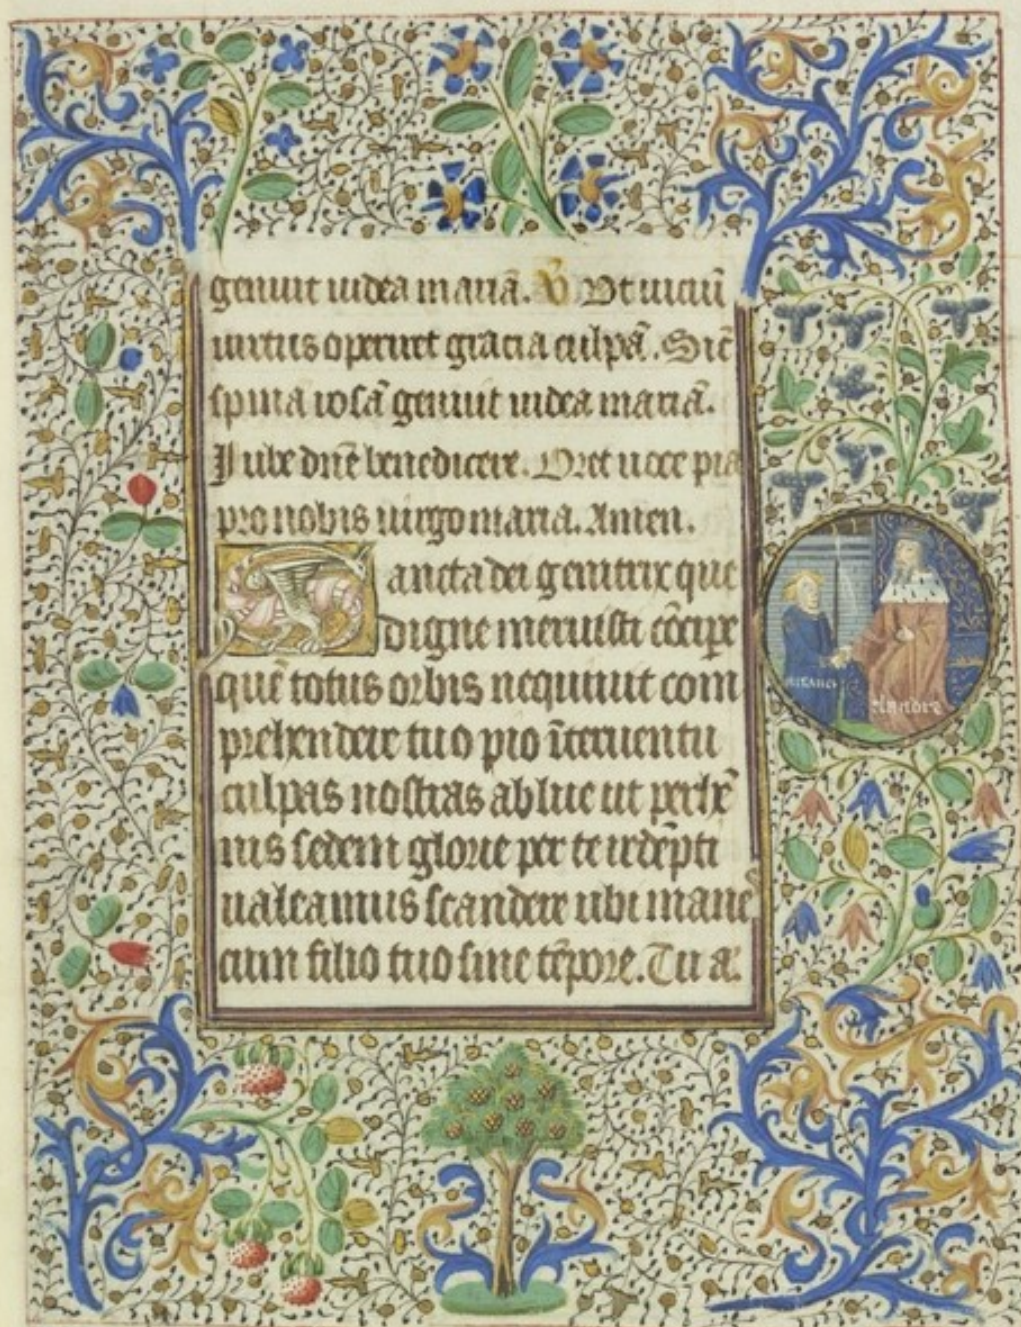 genuit iudea mariā. V̄ Vt uiciū
uirtus operiret gracia culpā. Sic̄
spina rosā genuit iudea mariā.
Iube dn̄e benedicere. Oret uoce pia
pro nobis uirgo maria. Amen.
Sancta dei genitrix que
digne meruisti cōcipe
quē totus orbis nequiuit com
prehendere tuo pio īteruentu
culpas nostras ablue ut perhē
nis sedem glorie per te redēpti
ualeamus scandere ubi manes
cum filio tuo sine tēpore. Tu a.